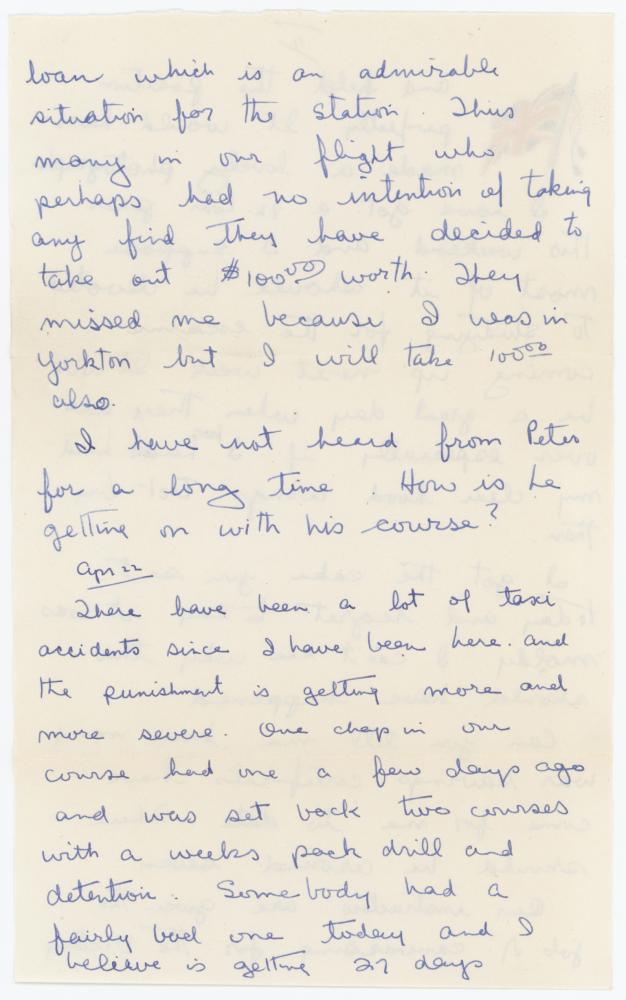 loan which is an admirable
situation for the station. Thus
many in our flight who
perhaps had no intention of taking
any find they have decided to
take out $100⁰⁰ worth. They
missed me because I was in
Yorkton but I will take 100⁰⁰
also.
I have not heard from Peter
for a long time. How is he
getting on with his course?
Apr 22
There have been a lot of taxi
accidents since I have been here and
the punishment is getting more and
more severe. One chap in our
course had one a few days ago
and was set back two courses
with a weeks pack drill and
detention. Somebody had a
fairly bad one today and I
believe is getting 27 days